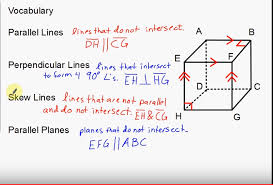 Vocabulary
Parallel Lines lines that do not intersect.
DH || CG
Perpendicular Lines lines that intersect
to form 4 90° L's. EH ⊥ HG
Skew Lines lines that are not parallel
and do not intersect. EH & CG
Parallel Planes planes that do not intersect.
EFG || ABC
A B
E F
D C
H G